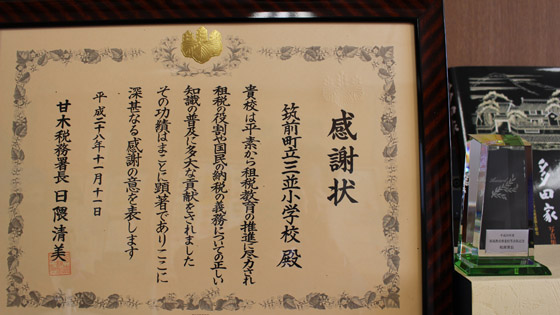 感謝状
筑前町立三並小学校 殿
貴校は平素から租税教育の推進に尽力され
租税の役割や国民の納税の義務についての正しい
知識の普及に多大な貢献をされました
その功績はまことに顕著でありここに
深甚なる感謝の意を表します
平成二十八年十一月十一日
甘木税務署長 日隈清美
田家